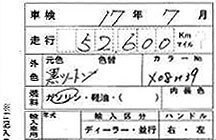 車検 17年7月
走行 52,600 Km マイル
外色 元色 色替 カラーNo.
黒ツートン X08M39
燃料 ガソリン・軽油・( )
輸入区分 ハンドル
ディーラー・並行 右・左
※ご記入